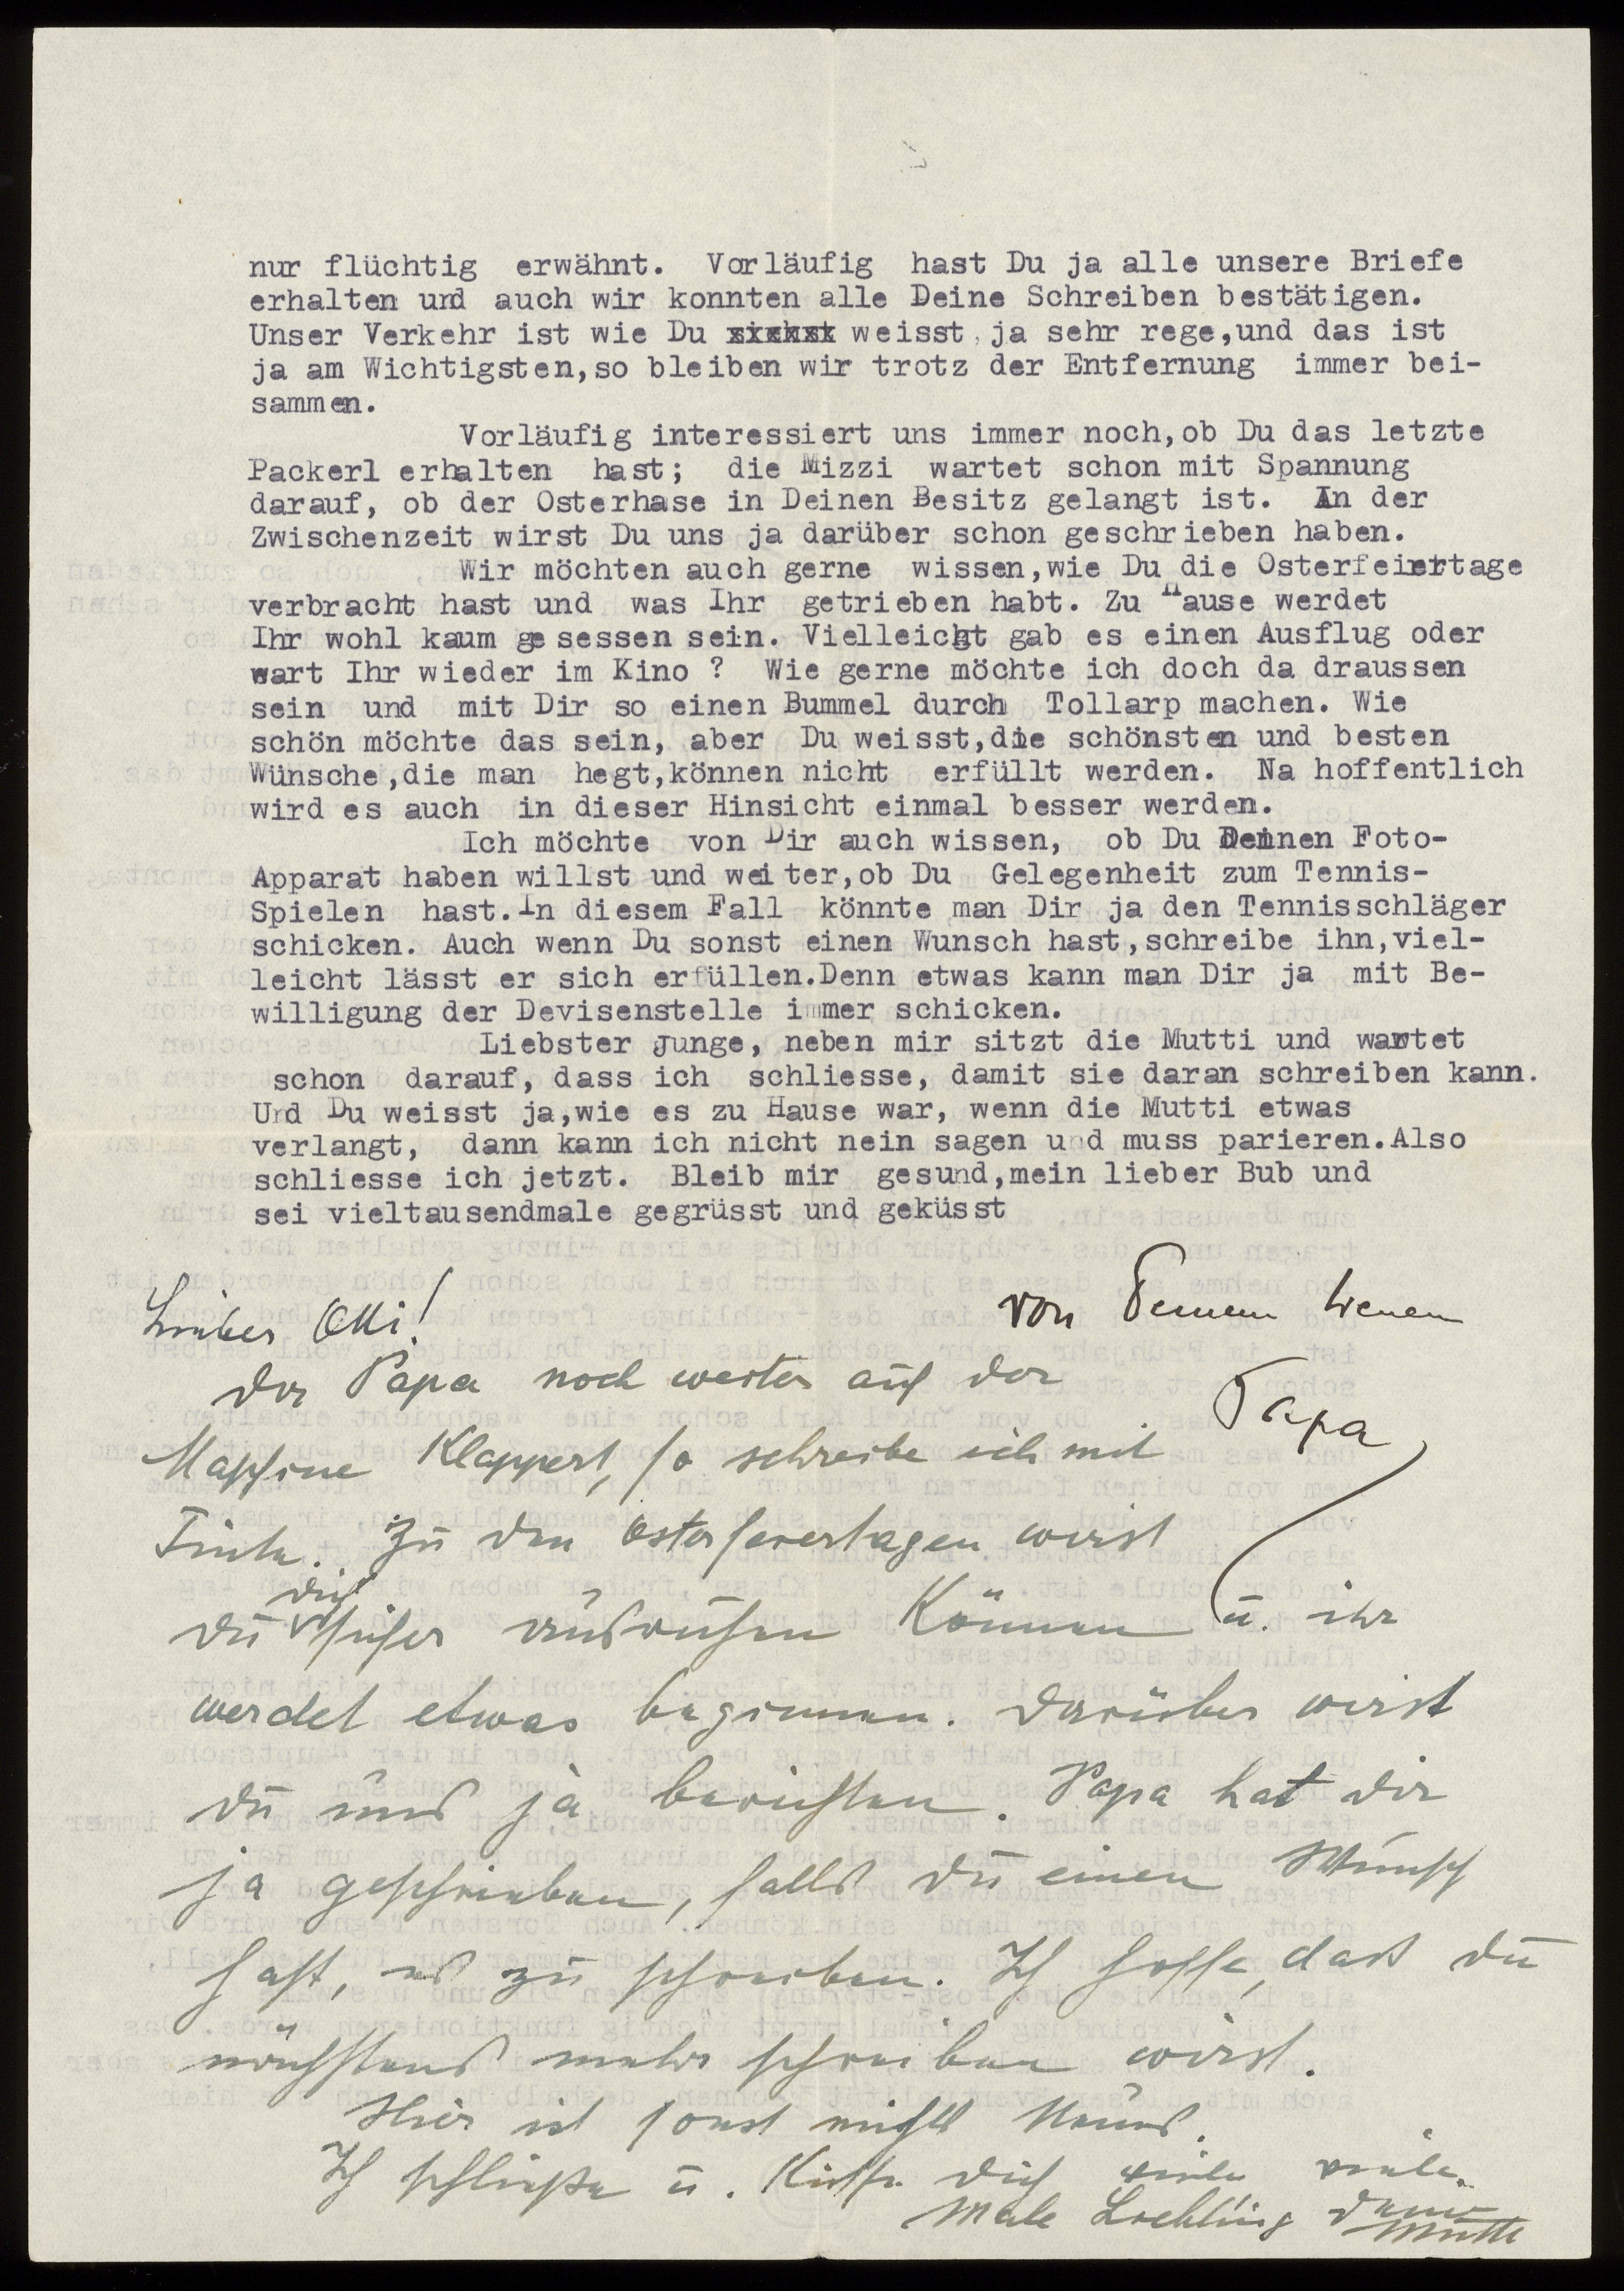 nur flüchtig erwähnt. Vorläufig hast Du ja alle unsere Briefe
erhalten und auch wir konnten alle Deine Schreiben bestätigen.
Unser Verkehr ist wie Du weisst, ja sehr rege,und das ist
ja am Wichtigsten,so bleiben wir trotz der Entfernung immer bei-
sammen.
Vorläufig interessiert uns immer noch,ob Du das letzte
Packerl erhalten hast; die Mizzi wartet schon mit Spannung
darauf, ob der Osterhase in Deinen Besitz gelangt ist. In der
Zwischenzeit wirst Du uns ja darüber schon geschrieben haben.
Wir möchten auch gerne wissen,wie Du die Osterfeiertage
verbracht hast und was Ihr getrieben habt. Zu Hause werdet
Ihr wohl kaum gesessen sein. Vielleicht gab es einen Ausflug oder
wart Ihr wieder im Kino ? Wie gerne möchte ich doch da draussen
sein und mit Dir so einen Bummel durch Tollarp machen. Wie
schön möchte das sein, aber Du weisst,die schönsten und besten
Wünsche,die man hegt,können nicht erfüllt werden. Na hoffentlich
wird es auch in dieser Hinsicht einmal besser werden.
Ich möchte von Dir auch wissen, ob Du Deinen Foto-
Apparat haben willst und weiter,ob Du Gelegenheit zum Tennis-
Spielen hast.In diesem Fall könnte man Dir ja den Tennisschläger
schicken. Auch wenn Du sonst einen Wunsch hast,schreibe ihn,viel-
leicht lässt er sich erfüllen.Denn etwas kann man Dir ja mit Be-
willigung der Devisenstelle immer schicken.
Liebster Junge, neben mir sitzt die Mutti und wartet
schon darauf, dass ich schliesse, damit sie daran schreiben kann.
Und Du weisst ja,wie es zu Hause war, wenn die Mutti etwas
verlangt, dann kann ich nicht nein sagen und muss parieren.Also
schliesse ich jetzt. Bleib mir gesund,mein lieber Bub und
sei vieltausendmale gegrüsst und geküsst
von Deinem treuen
Papa
Lieber Otti!
Der Papa noch weiter auf der
Maschine klappert, so schreibe ich mit
Tinte. Zu den Osterfeiertagen wirst
du dich sicher ausruhen können u. ihr
werdet etwas beginnen. Darüber wirst
du uns ja berichten. Papa hat dir
ja geschrieben, falls du einen Wunsch
hast, es zu schreiben. Ich hoffe, daß du
nächstens mehr schreiben wirst.
Hier ist sonst nichts Neues.
Ich schließe u. küsse dich viele viele
Male Liebling deine
Mutti